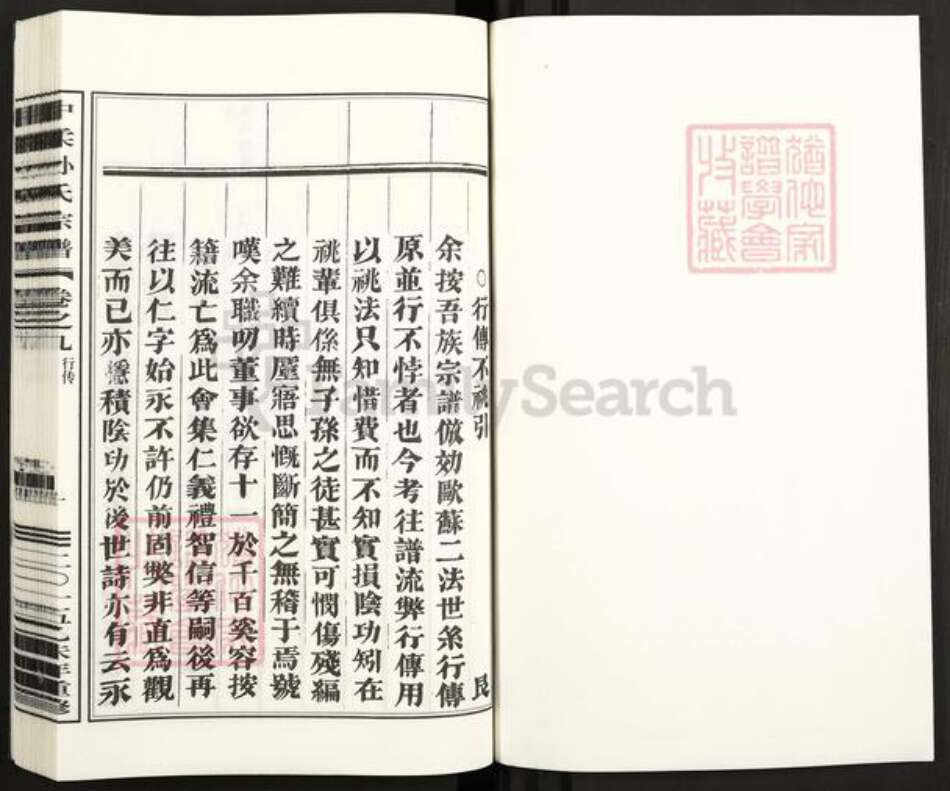 ○行傳不祧引
艮
余按吾族宗譜倣効歐蘇二法世系行傳
原並行不悖者也今考往譜流弊行傳用
以祧法只知惜費而不知實損陰功矧在
祧輩俱係無子孫之徒甚實可憫傷殘編
之難續時屢寤思慨斷簡之無稽于焉號
嘆余職叨董事欲存十一於千百奚容按
籍流亡為此會集仁義禮智信等嗣後再
往以仁字始永不許仍前固獘非直為觀
美而已亦穩積陰功於後世詩亦有云永
孙氏宗譜 卷之九 行传
二〇一五乙未年重修
猶他家
譜學會
收藏
FamilySearch